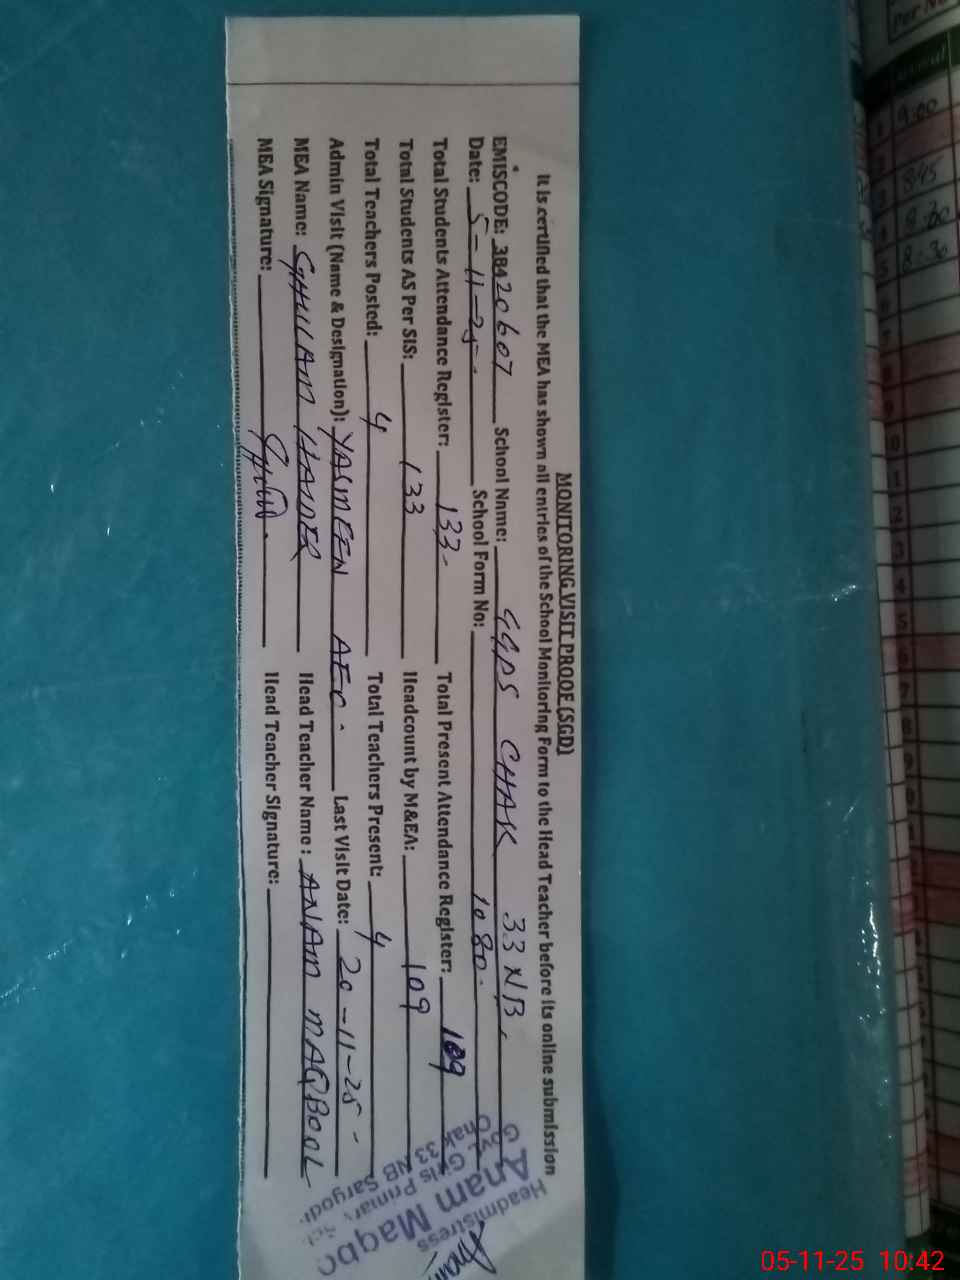 MONITORING VISIT PROOF (SGD)
It is certified that the MEA has shown all entries of the School Monitoring Form to the Head Teacher before its online submission
EMISCODE: 38420607 School Name: GGPS CHAK 33 NB.
Date: 5-11-25- School Form No: 1080.
Total Students Attendance Register: 133- Total Present Attendance Register: 109
Total Students AS Per SIS: 133 Headcount by M&EA: 109
Total Teachers Posted: 4 Total Teachers Present: 4
Admin Visit (Name & Designation): YASMEEN AEO. Last Visit Date: 20-11-25-
MEA Name: GHULAM HAIDER Head Teacher Name: ANAM MAQBOOL
MEA Signature: Head Teacher Signature:
Headmistress
Anam Maqbo
Govt. Girls Primary Sch
Chak 33 NB Sargod
Per No
9:00
8:45
8:30
8:30
05-11-25 10:42